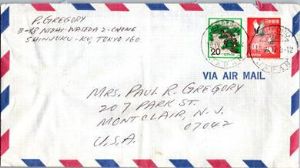 P. GREGORY
NISHI-WASEDA 2-CHOME
SHINJUKU-KU, TOKYO 160
20
VIA AIR MAIL
MRS. PAUL R. GREGORY
207 PARK ST.
MONTCLAIR, N. J.
07042
U.S.A.